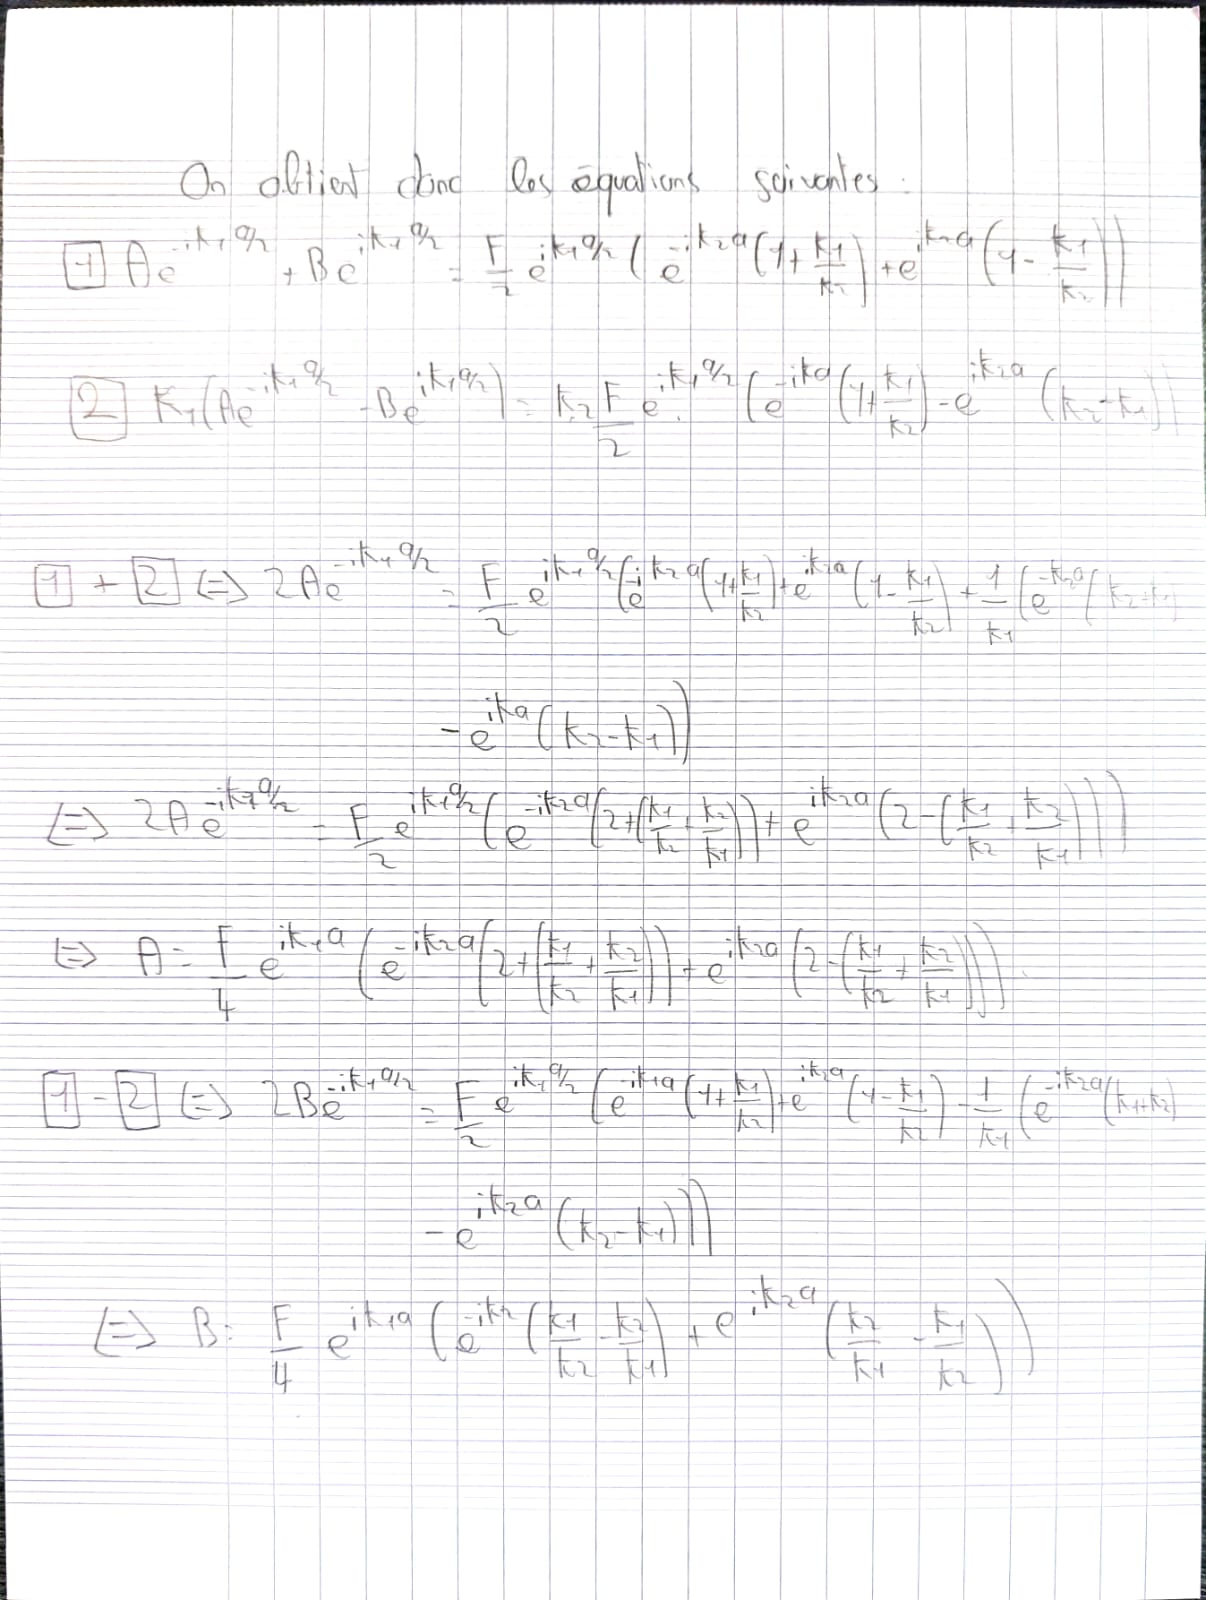 On obtient donc les équations suivantes :
[1] A e^{-ik₁a/2} + B e^{ik₁a/2} = F/2 e^{ik₁a/2} ( e^{-ik₂a} (1 + k₁/k₂) + e^{ik₂a} (1 - k₁/k₂))
[2] k₁(A e^{-ik₁a/2} - B e^{ik₁a/2}) = k₂ F/2 e^{ik₁a/2} (e^{-ika} (1 + k₁/k₂) - e^{ik₂a} (k₂ - k₁))
[1] + [2] ⇔ 2A e^{-ik₁a/2} = F/2 e^{ik₁a/2} (e^{-ik₂a} (1 + k₁/k₂) + e^{ik₂a} (1 - k₁/k₂) + 1/k₁ (e^{-k₂a} (k₂ + k₁)
- e^{ika} (k₂ - k₁))
⇔ 2A e^{-ik₁a/2} = F/2 e^{ik₁a/2} (e^{-ik₂a} (2 + (k₁/k₂ + k₂/k₁)) + e^{ik₂a} (2 - (k₁/k₂ + k₂/k₁)))
⇔ A = F/4 e^{ik₁a} (e^{-ik₂a} (2 + (k₁/k₂ + k₂/k₁)) + e^{ik₂a} (2 - (k₁/k₂ + k₂/k₁)))
[1] - [2] ⇔ 2B e^{-ik₁a/2} = F/2 e^{ik₁a/2} (e^{-ik₁a} (1 + k₁/k₂) + e^{ik₂a} (1 - k₁/k₂) - 1/k₁ (e^{-ik₂a} (k₁ + k₂)
- e^{ik₂a} (k₂ - k₁)))
⇔ B = F/4 e^{ik₁a} (e^{-ik₂} (k₁/k₂ - k₂/k₁) + e^{ik₂a} (k₂/k₁ - k₁/k₂))